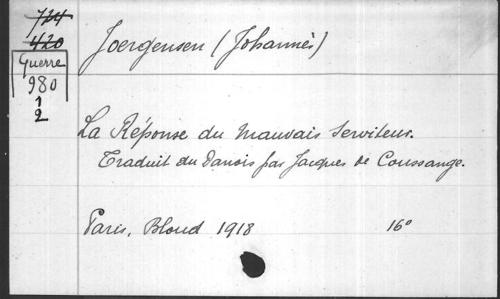 724
420
Guerre
980
1
2
Joergensen (Johannès)
La Réponse du Mauvais Serviteur.
Traduit du Danois par Jacques de Coussange.
Paris, Bloud 1918 16°